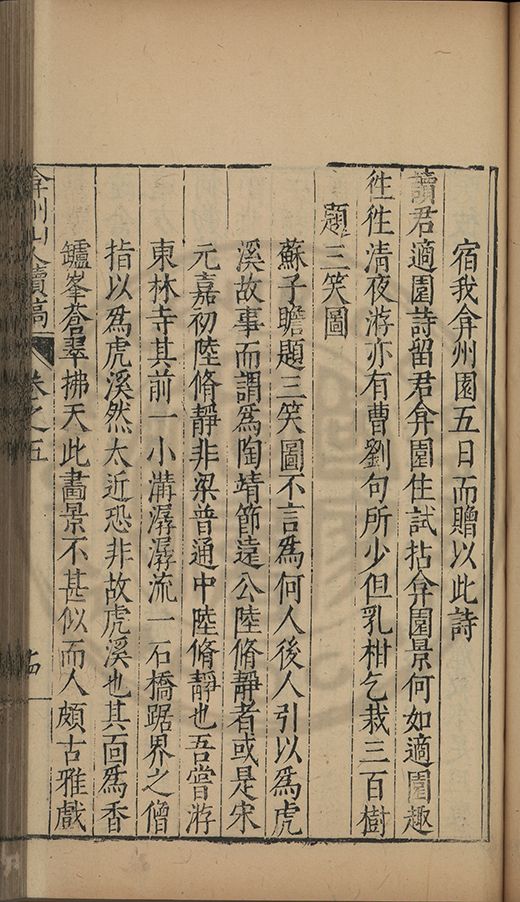 宿我弇州園五日而贈以此詩
讀君適園詩留君弇園住試拈弇園景何如適園趣
徃徃清夜游亦有曹劉句所少但乳柑乞栽三百樹
題三笑圖
蘇子瞻題三笑圖不言爲何人後人引以爲虎
溪故事而謂爲陶靖節遠公陸脩靜者或是宋
元嘉初陸脩靜非梁普通中陸脩靜也吾嘗游
東林寺其前一小溝潺潺流一石橋踞界之僧
指以爲虎溪然太近恐非故虎溪也其面爲香
鑪峯蒼翠拂天此畵景不甚似而人頗古雅戲
弇州山人續稿 卷之五